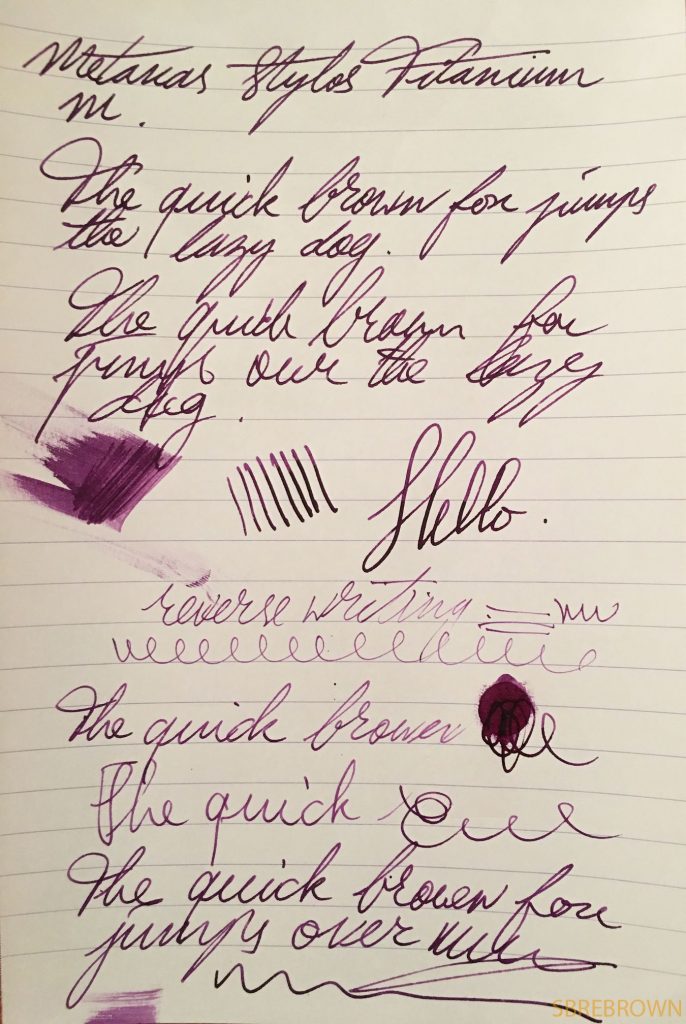 Metaxas Stylos Titanium
M.
The quick brown fox jumps
the lazy dog.
The quick brown fox
jumps over the lazy
dog.
Hello.
reverse writing
The quick brown
The quick
The quick brown fox
jumps over
SBREBROWN